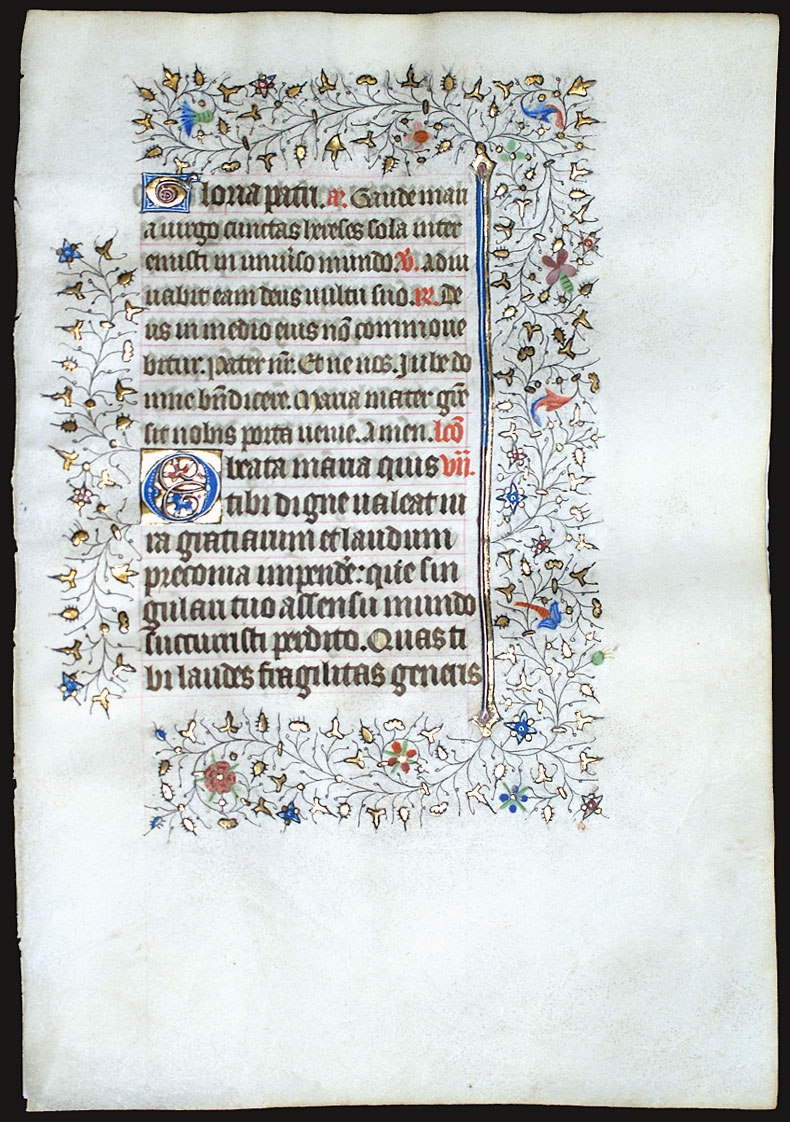 Gloria patri. a. Gaude mari
a uirgo cunctas hereses sola inter
emisti in uniuso mundo. v. adiu
uabit eam deus uultu suo. R. De
us in medio eius nō commoue
bitur. Pater nr̄. Et ne nos. Jube do
mne bn̄dicere. Maria mater grē
sit nobis porta uenie. Amen. lcō
O beata maria quis vii.
tibi digne ualeat iu
ra gratiarum et laudum
preconia impendere: que sin
gulari tuo assensu mundo
succuristi perdito. Quas ti
bi laudes fragilitas generis